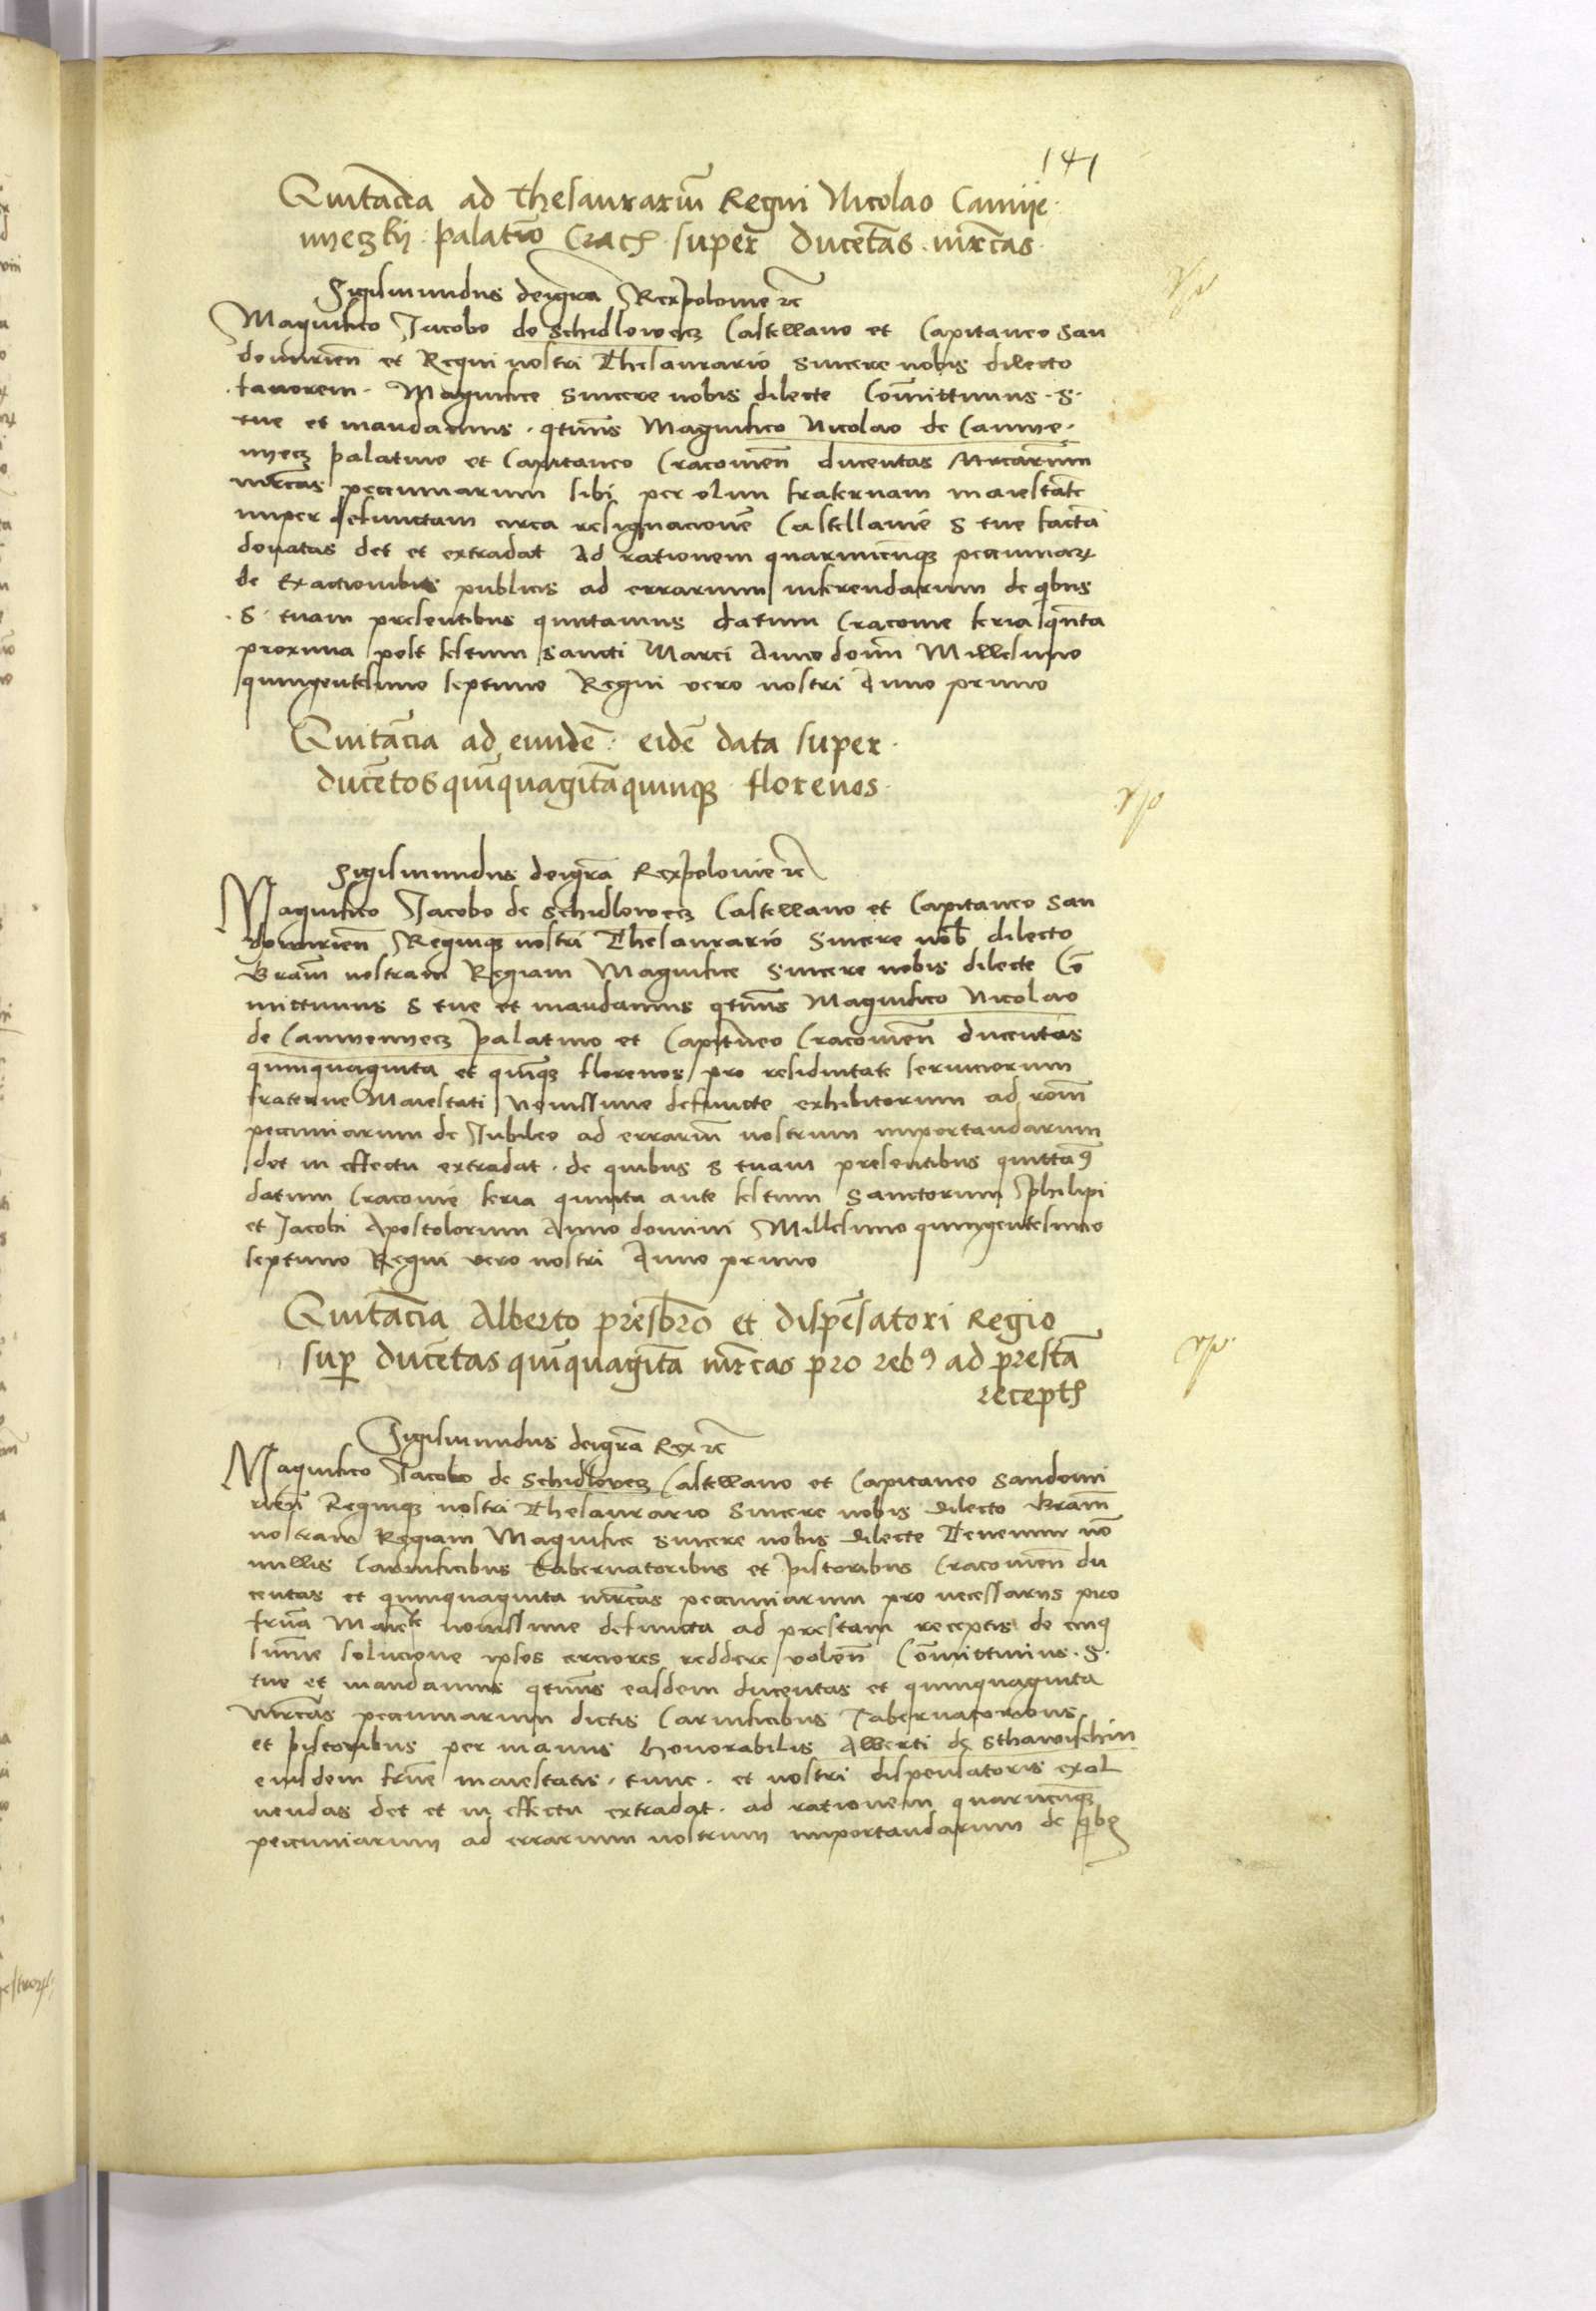 141
Quitancia ad Thesaurariu͞ Regni Nicolao Camije
nyeczkij palati͞o Crac͞ super duce͞tas mrcas
Sigismundus dei gr͞a Rex Polonie ꝛc
Magnifico Jacobo de Schidlowecz Castellano et Capitaneo San
domirien͞ et Regni nostri Thesaurario sincere nobis dilecto
fauorem. Magnifice sincere nobis dilecte Co͞mittimus .S.
tue et mandamus . qt͞ins Magnifico Nicolao de Camye.
nyecz palatino et Capitaneo Cracouien͞ ducentas Mrcarum
mrcas pecuniarum sibi per olim fraternam maiestate͞
nuper defunctam circa resignacione͞ Castellanie S tue facta͞
donatas det et extradat Ad rationem quarumcunqꝫ pecuniaꝝ
de Exactionibus publicis ad errarium inferendarum de qibus
.S. tuam presentibus quittamus datum Cracouie feria qi͞nta
proxima post festum sancti Marci Anno domi͞ Millesimo
quingentesimo septimo Regni vero nostri Anno primo
Quita͞cia ad eunde͞ : eide͞ data super
duce͞tos qui͞quaginta quinqꝫ florenos
Sigismundus dei gr͞a Rex Polonie ꝛc
Magnifico Jacobo de Schidlowecz Castellano et Capitaneo San
domirien͞ Regniqꝫ nostri Thesaurario sincere nob͞ dilecto
Gram͞ nostram Regiam Magnifice sincere nobis dilecte Co͞
mittimus S tue et mandamus qt͞ins Magnifico Nicolao
de Camyenyecz Palatino et Capit͞neo Cracouien͞ ducentas
quinquaginta et qui͞qꝫ florenos pro residuitate seruiciorum
fraterne Maiestati Nouissime defuncte exhibitorum ad ro͞nem
pecuniarum de Jubileo ad errariu͞ nostrum importandarum
det in effectu extradat . de quibus S tuam presentibus quittaꝰ
datum Cracouie feria quinta ante festum Sanctorum Philipi
et Jacobi Apostolorum Anno domini Millesimo quingentesimo
septimo Regni vero nostri Anno primo
Quita͞cia Alberto presb͞ro et dispe͞satori Regio
suꝑ duce͞tas qui͞quagi͞ta mrcas pro rebꝰ ad presta͞
recept͞
Sigismundus dei gr͞a Rex ꝛc
Magnifico Jacobo de Schidlovecz Castellano et Capitaneo Sandomi
rien͞ Regniqꝫ nostri Thesaurario sincere nobis dilecto Gram͞
nostram Regiam Magnifice sincere nobis dilecte Tenemur no͞
nullis Carnificibus Tabernatoribus et Pistoribus Cracouien͞ du
centas et quinquaginta mrcas pecuniarum pro necessariis pro
fr͞na Maiest͞te nouissime defuncta ad prestam receptis de cuiꝰ
sum͞e solucione ipsos cerciores reddere volen͞ Co͞mittimus .S.
tue et mandamus qt͞ins easdem ducentas et quinquaginta
mrcas pecuniarum dictis Carnificibus Tabernatoribus
et pistoribus per manus honorabilis Alberti de Sthawischin
eiusdem fr͞ne maiestatis . tunc . et nostri dispensatoris exol
uendas det et in effectu extradat . ad rationem quarucunqꝫ
pecuniarum ad errarium nostrum importandarum de qibꝰ